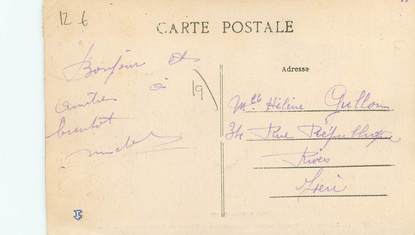 12 €
CARTE POSTALE
Bonjour et
à
amitiés
bientôt
Michel
19
Adresse
Mlle Hélène Guillon
34 Rue République
Rives
Isère